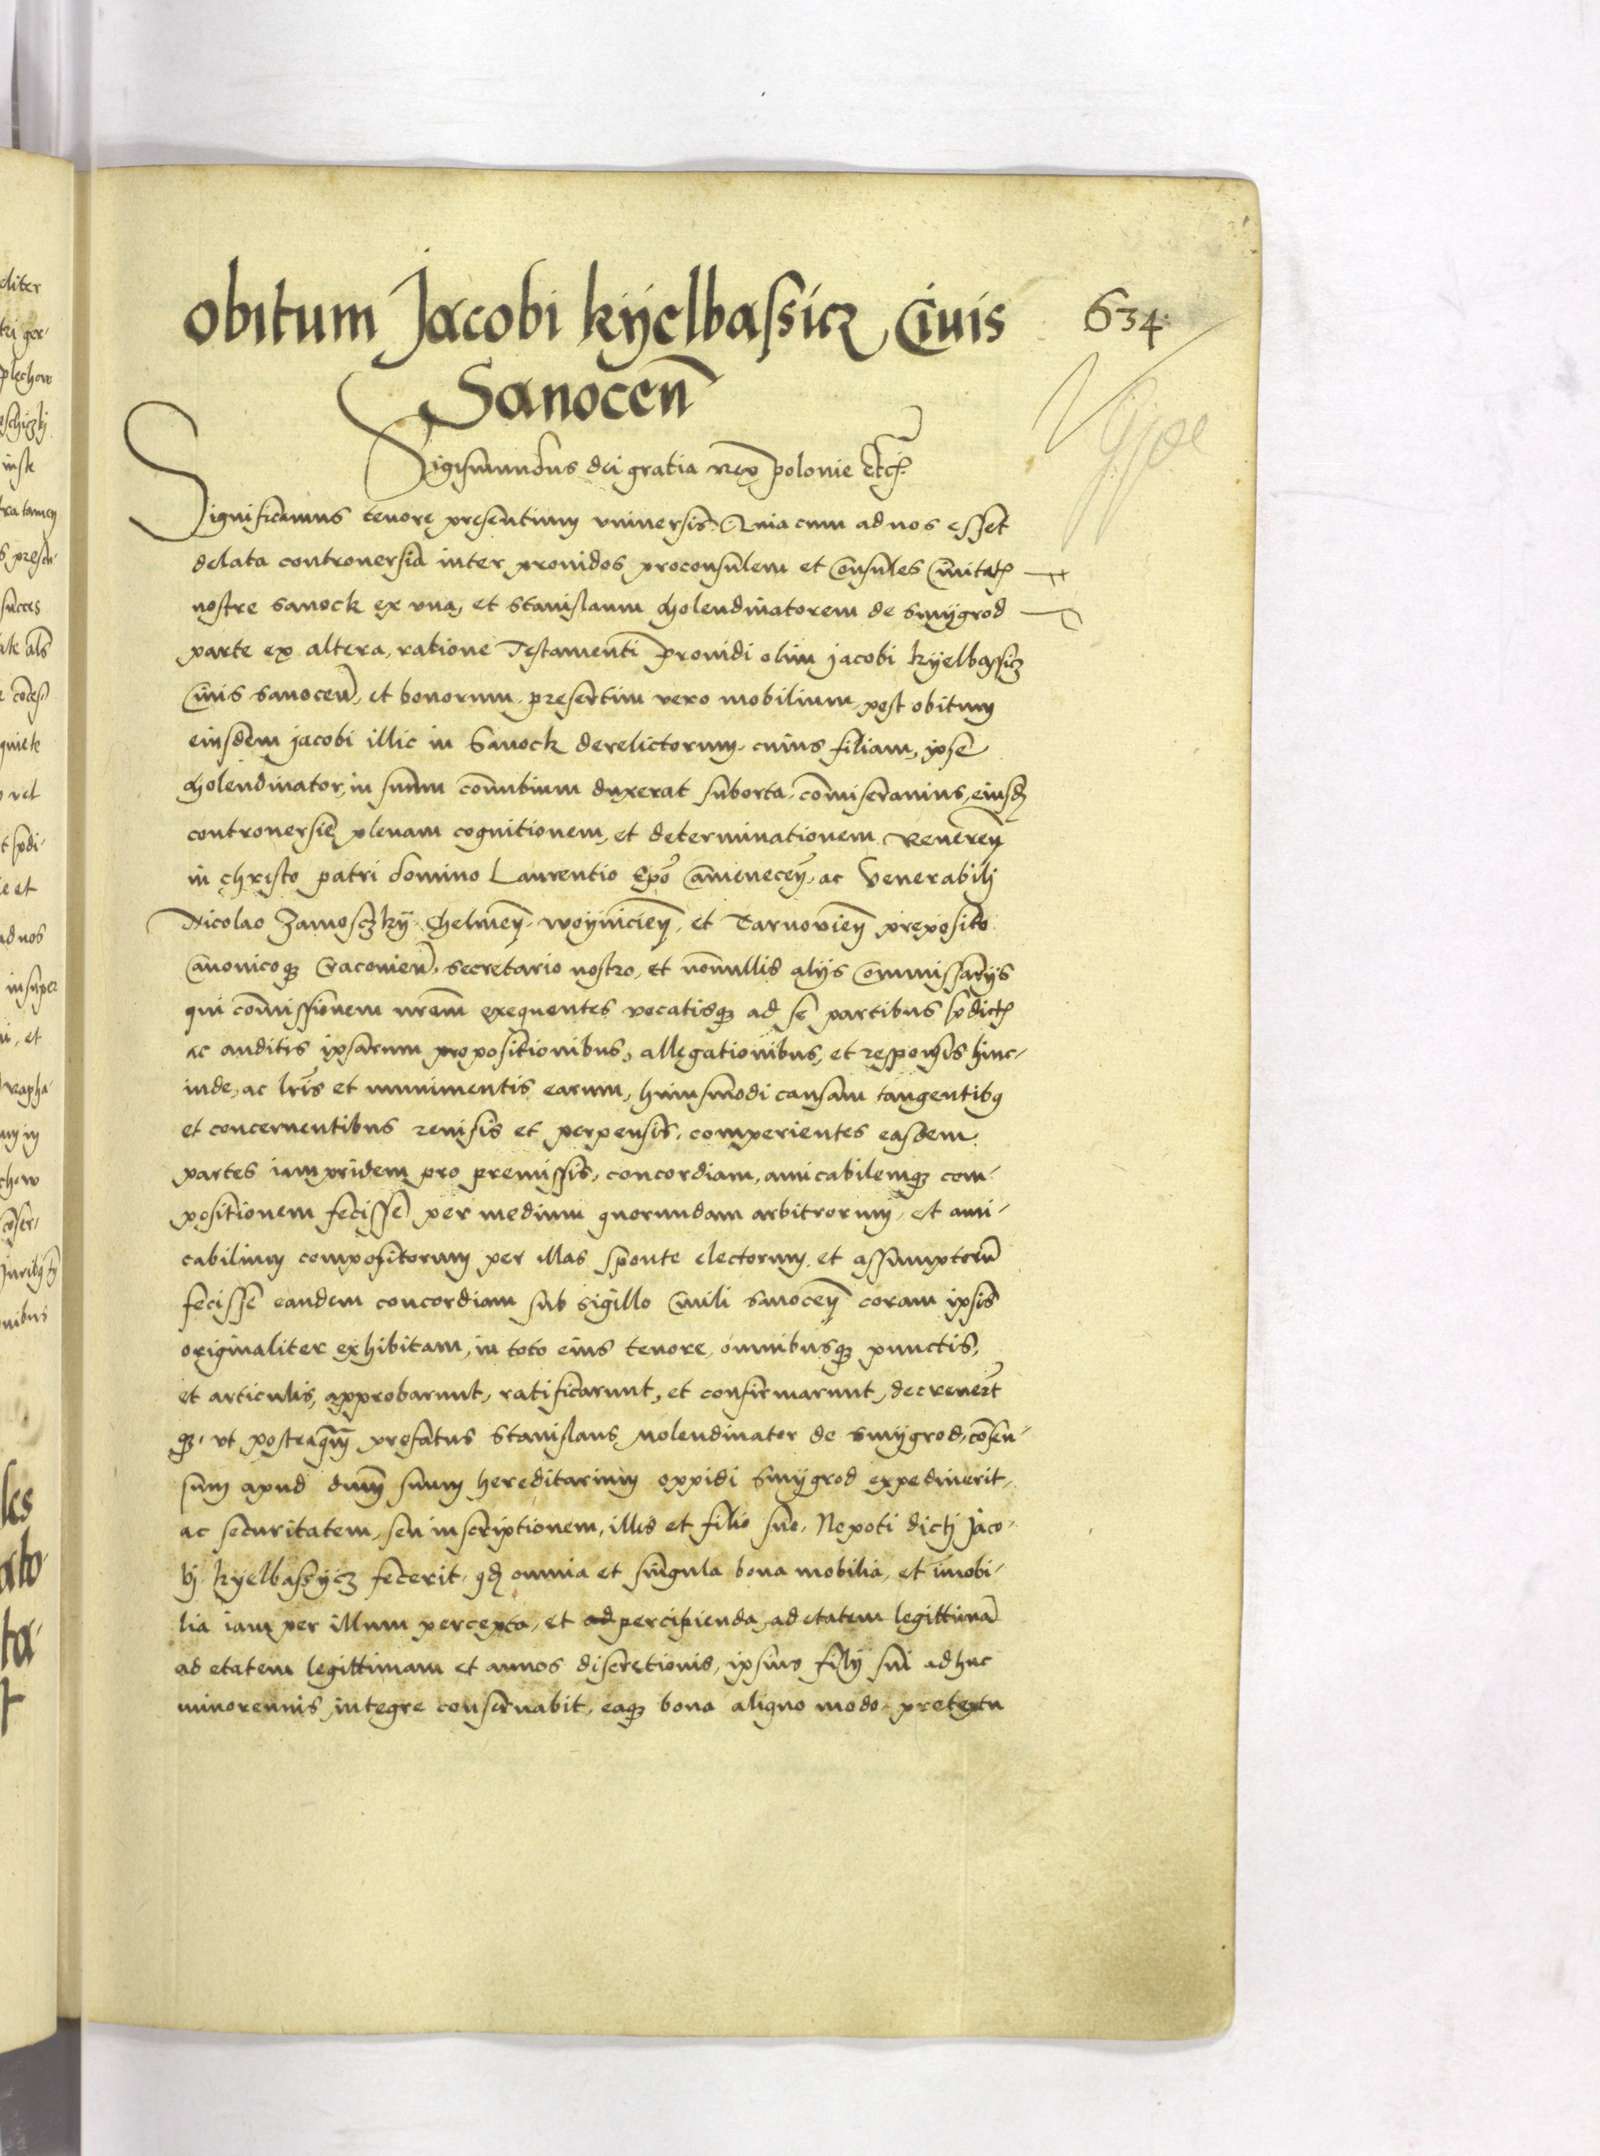 obitum Jacobi kÿelbassicz Ciuis
Sanoceñ
634
Sigismundus dei gratia rex polonie etc.
Significamus tenore presentium vniuersis. Quia cum ad nos esset
delata controuersia inter prouidos proconsulem et Consules Ciuitatis
nostre Sanock ex vna, et Stanislaum Molendinatorem de Smÿgrod
parte ex altera, ratione Testamenti Prouidi olim Jacobi Kÿelbassicz
Ciuis Sanoceñ, et bonorum, presertim vero mobilium, post obitum
eiusdem Jacobi illic in Sanock derelictorum, cuius filiam, ipse
Molendinator, in suum connubium duxerat suborta, commiseramus, eiusdem
controuersie plenam cognitionem, et determinationem Reuereñ
in christo patri domino Laurentio Epo Cameneceñ, ac Venerabilj
Nicolao Zamosczkÿ Chelmeñ, Woÿnicieñ, et Tarnouieñ preposito
Canonicoque Cracouieñ, secretario nostro, et nonnullis alijs Commissarijs
qui commissionem nram exequentes vocatisque ad se partibus spdictis
ac auditis ipsarum propositionibus, allegationibus, et responsis hinc-
inde, ac lris et munimentis earum, huiusmodi causam tangentibus
et concernentibus reuisis et perpensis, comperientes easdem
partes iampridem pro premissis, concordiam, amicabilemque com-
positionem fecisse per medium quorundam arbitrorum, et ami-
cabilium compositorum per illas sponte electorum, et assumptorum
fecisse eandem concordiam sub sigillo Ciuili Sanoceñ coram ipsis
originaliter exhibitam, in toto eius tenore, omnibusque punctis,
et articulis, approbarunt, ratificarunt, et confirmarunt, decreuerunt
que, vt posteaquam prefatus Stanislaus Molendinator de Smÿgrod, consen-
sum apud dnum suum hereditarium oppidi Smÿgrod expediuerit,
ac securitatem, seu inscriptionem, illis et filio suo, Nepoti dictj Jaco-
bj Kÿelbassÿcz fecerit, quod omnia et singula bona mobilia, et immobi-
lia iam per illum percepta, et ad percipienda, ad etatem legittimam
ad etatem legittimam et annos discretionis, ipsius filij sui adhuc
minorennis integre conseruabit, eaque bona aliquo modo pretextu